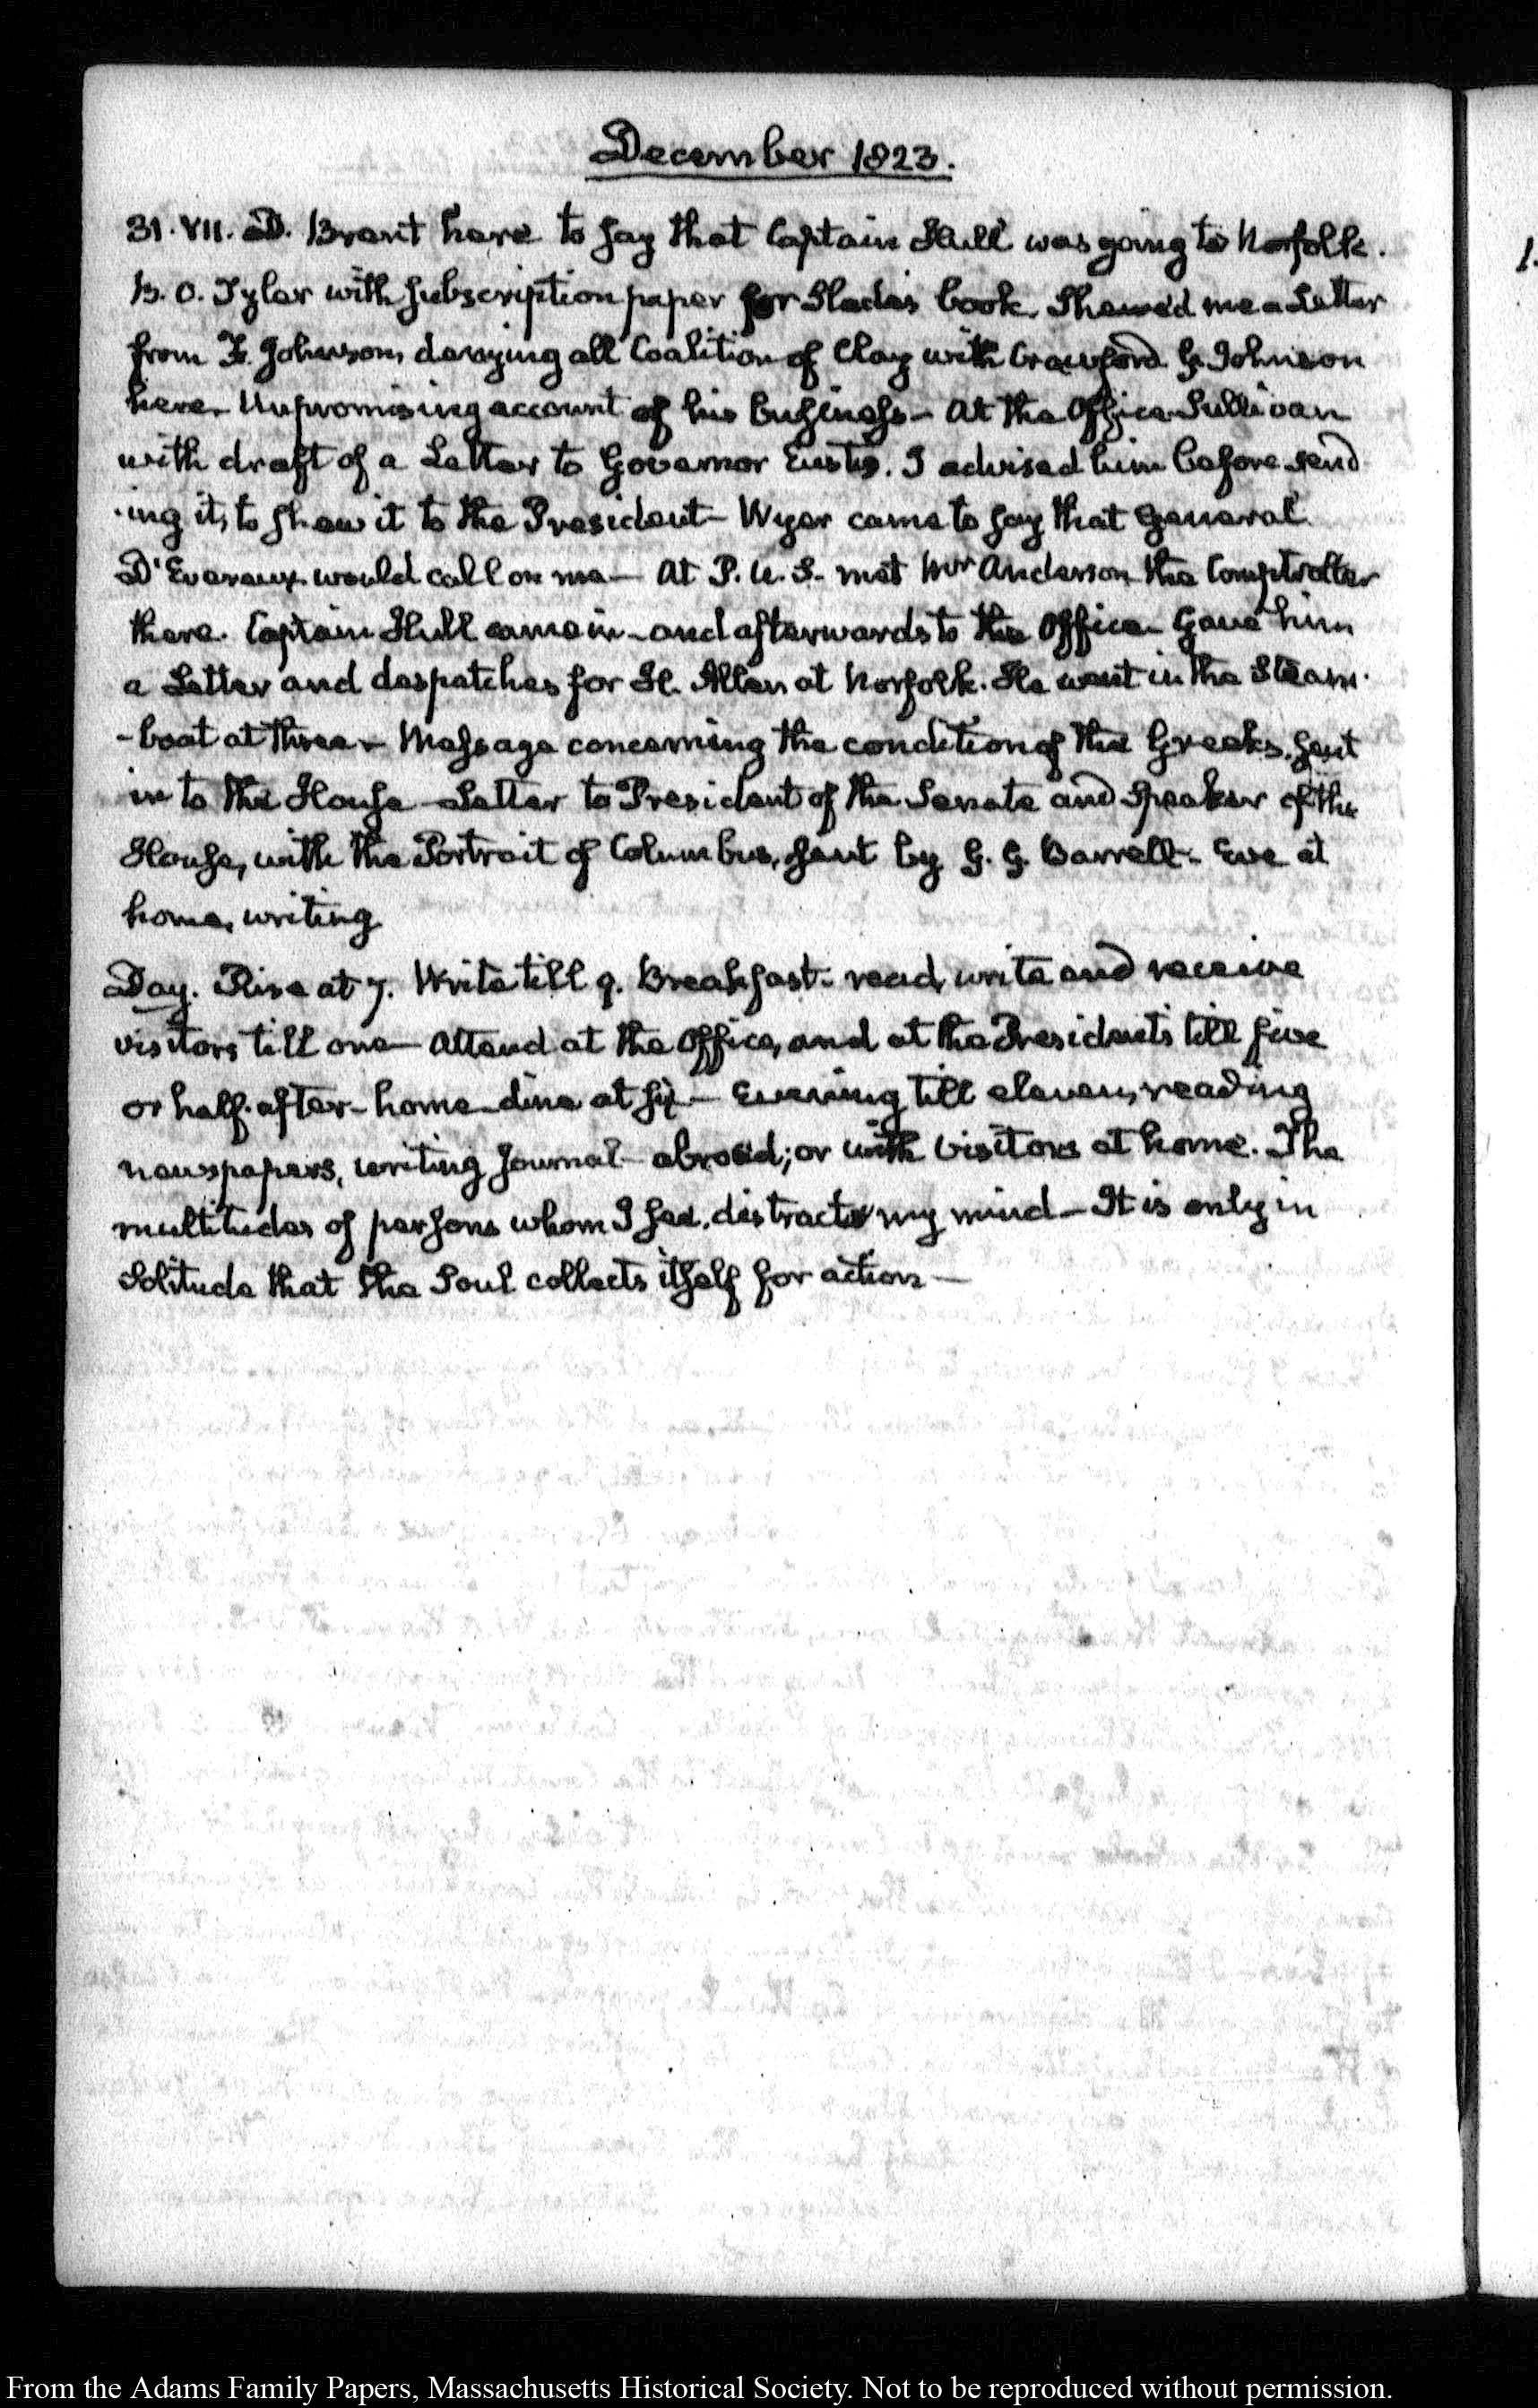 December 1823.
31. VII. D. Brent here to say that Captain Hull was going to Norfolk.
B. O. Tyler with subscription paper for Slade's book. Shewed me a Letter
from F. Johnson, denying all Coalition of Clay with Crawford G. Johnson
here. Unpromising account of his business — At the Office Sullivan
with draft of a Letter to Governor Eustis. I advised him before send
-ing it, to shew it to the President — Wyer came to say that General
D'Evereux would call on me — At P. U. S. met Mr Anderson the Comptroller
there. Captain Hull came in — and afterwards to the Office — Gave him
a Letter and despatches for H. Allen at Norfolk. He went in the Steam-
-boat at three — Message concerning the condition of the Greeks, sent
in to the House — Letter to President of the Senate and Speaker of the
House, with the Portrait of Columbus, sent by G. G. Barrell. Eve at
home, writing
Day. Rise at 7. Write till 9. Breakfast — read, write and receive
visitors till one — Attend at the Office, and at the Presidents till five
or half-after — home — dine at six — Evening till eleven, reading
newspapers, writing Journal — abroad; or with visitors at home. The
multitudes of persons whom I see, distracts my mind — It is only in
Solitude that the Soul collects itself for action —
1.
From the Adams Family Papers, Massachusetts Historical Society. Not to be reproduced without permission.